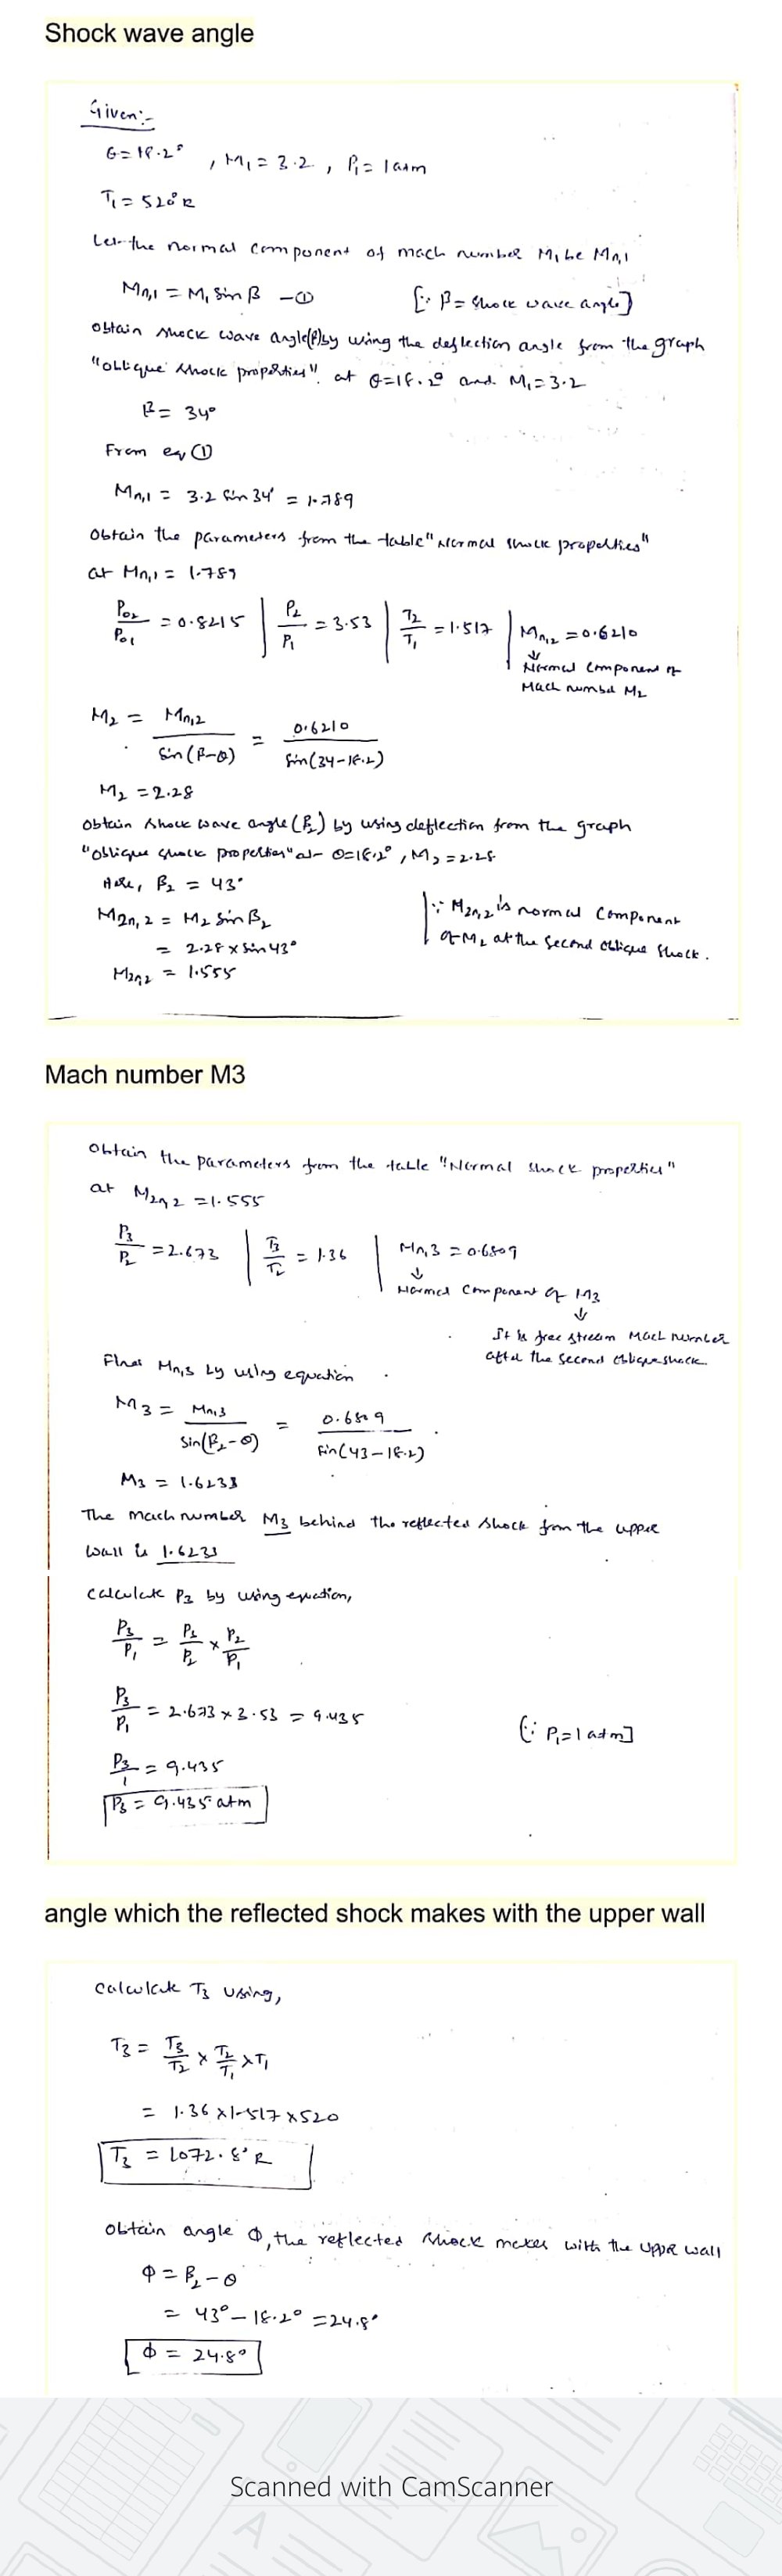 Shock wave angle
Given:-
θ = 18.2° , M₁ = 3.2 , P₁ = 1 atm
T₁ = 520°R
Let the normal component of mach number M₁ be Mn,1
Mn,1 = M₁ Sin β —①   [∵ β = Shock wave angle]
obtain shock wave angle(β) by using the deflection angle from the graph
"oblique shock properties". at θ=18.2° and M₁=3.2
β = 34°
From eq ①
Mn,1 = 3.2 Sin 34° = 1.789
Obtain the parameters from the table "Normal shock properties"
at Mn,1 = 1.789
Po2/Po1 = 0.8215 | P2/P1 = 3.53 | T2/T1 = 1.517 | Mn,2 = 0.6210
↓
Normal component of
Mach number M2
M2 = Mn,2/Sin(β-θ) = 0.6210/Sin(34-18.2)
M2 = 2.28
obtain shock wave angle (β2) by using deflection from the graph
"oblique shock properties" at θ=18.2°, M2 = 2.28
Here, β2 = 43°
M2n,2 = M2 Sin β2
= 2.28 x Sin 43°
M2n2 = 1.555
∵ M2n,2 is normal component
of M2 at the second oblique shock.
Mach number M3
Obtain the parameters from the table "Normal shock properties"
at M2n2 = 1.555
P3/P2 = 2.673 | T3/T2 = 1.36 | Mn,3 = 0.6809
↓
Normal component of M3
↓
It is free stream Mach number
after the second oblique shock.
Find Mn,3 by using equation
M3 = Mn,3/Sin(β2-θ) = 0.6809/Sin(43-18.2)
M3 = 1.6233
The mach number M3 behind the reflected shock from the upper
wall is 1.6233
calculate P3 by using equation,
P3/P1 = P3/P2 x P2/P1
P3/P1 = 2.673 x 3.53 = 9.435   [∵ P₁=1 atm]
P3/1 = 9.435
P3 = 9.435 atm
angle which the reflected shock makes with the upper wall
Calculate T3 Using,
T3 = T3/T2 x T2/T1 x T1
= 1.36 x 1.517 x 520
T3 = 1072.8°R
obtain angle Φ, the reflected shock makes with the upper wall
Φ = β2-θ
= 43° - 18.2° = 24.8°
Φ = 24.8°
Scanned with CamScanner